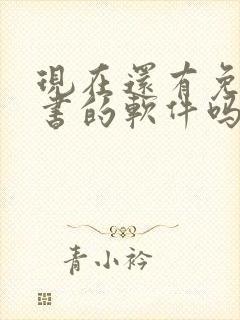 現在還有免
書的軟件吗
青小衿